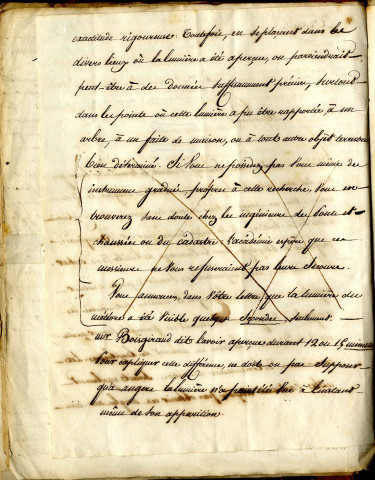 exactitude rigoureuse. Toutefois, en se plaçant dans les
divers lieux où la lumière a été aperçue, on parviendrait
peut être à des données suffisamment précises, surtout
dans les points où cette lumière a pu être rapportée à un
arbre, à un faîte de maison, ou à tout autre objet terrestre
bien déterminé. Si Vous ne possédez pas Vous même des
instrumens gradués propres à cette recherche, Vous en
trouverez sans doute chez les ingénieurs des Ponts et
chaussées ou du cadastre : l'académie espère que ces
messieurs ne Vous refuseraient pas leurs secours.
Vous annoncez, dans Votre lettre, que la lumière du
météore a été Visible quelques Secondes seulement.
Mr Boisgiraud dit l'avoir aperçue durant 12 ou 15 minutes
Pour expliquer cette différence, ne doit-on pas supposer
qu'à angers la lumière n'a point été Vue à l'instant
même de son apparition